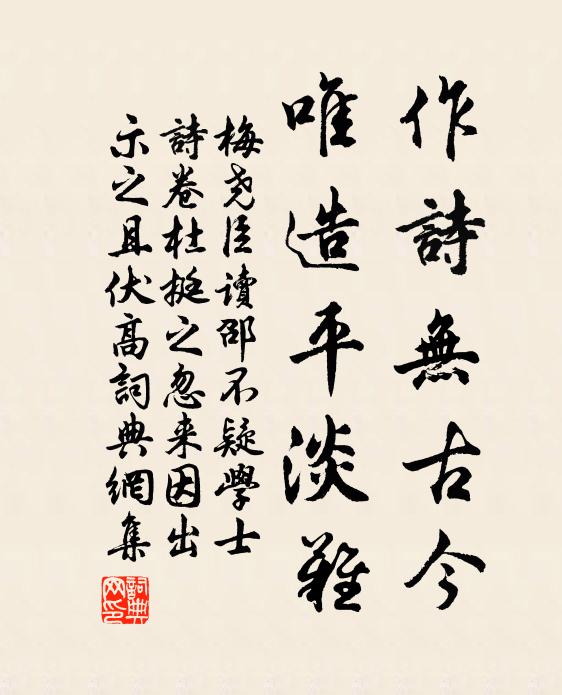 作詩無古今
唯造平淡難
梅堯臣讀邵不疑學士
詩卷杜挺之忽来因出
示之且伏高詞典網集
詞典網印